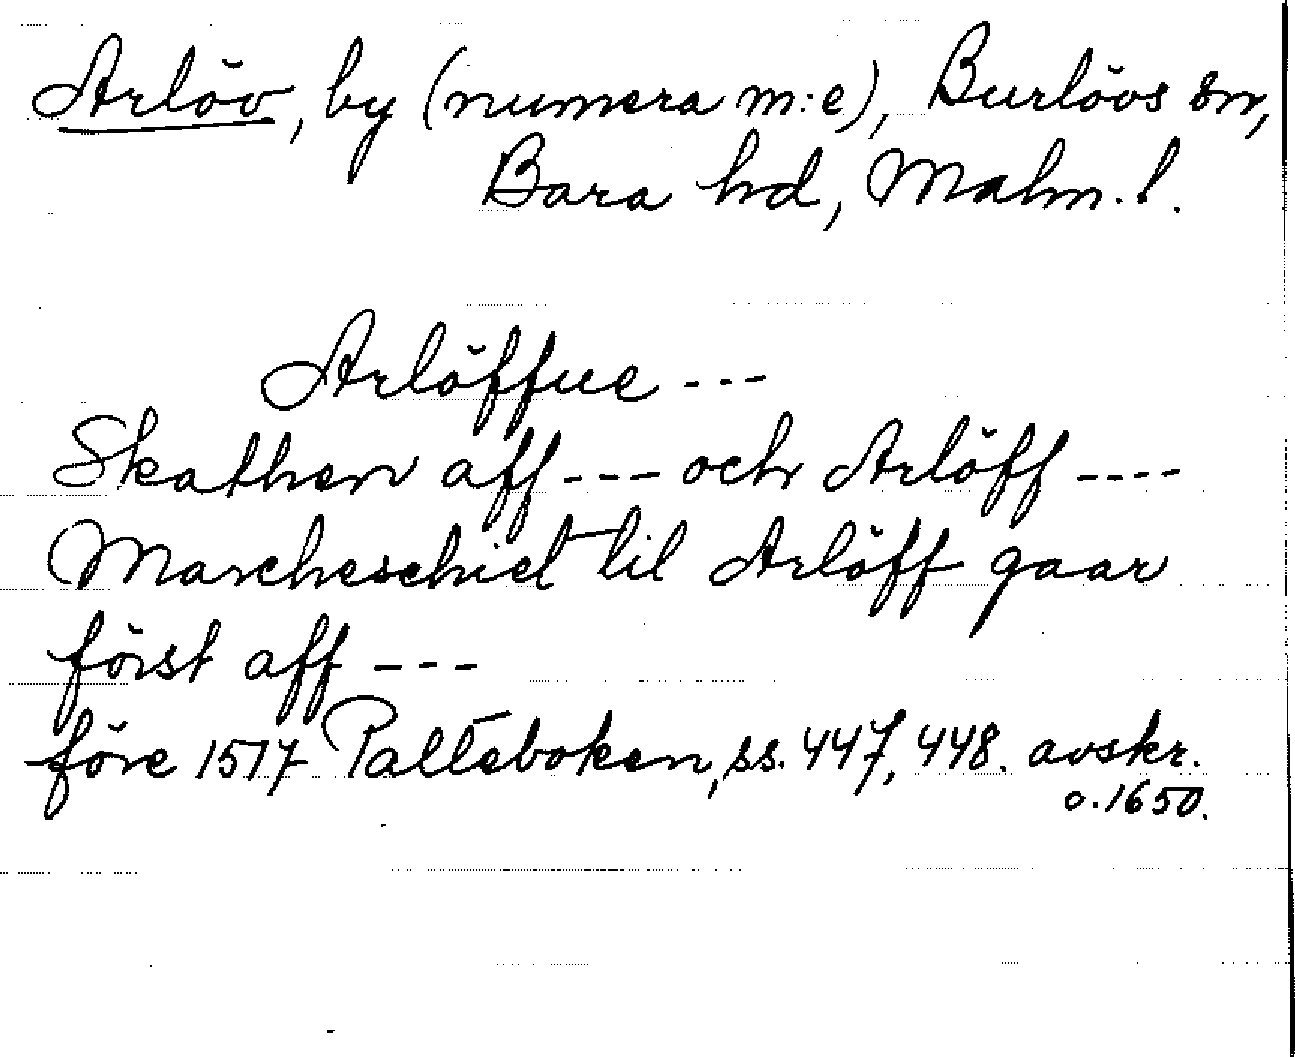 Arlöv, by (numera m:e), Burlövs sn,
Bara hd, Malm. l.
Arlöffue ---
Skathen aff --- och Arlöff ----
Marcheschiel til Arlöff gaar
först aff ---
före 1517 Palteboken, ss. 447, 448. avskr.
o. 1650.